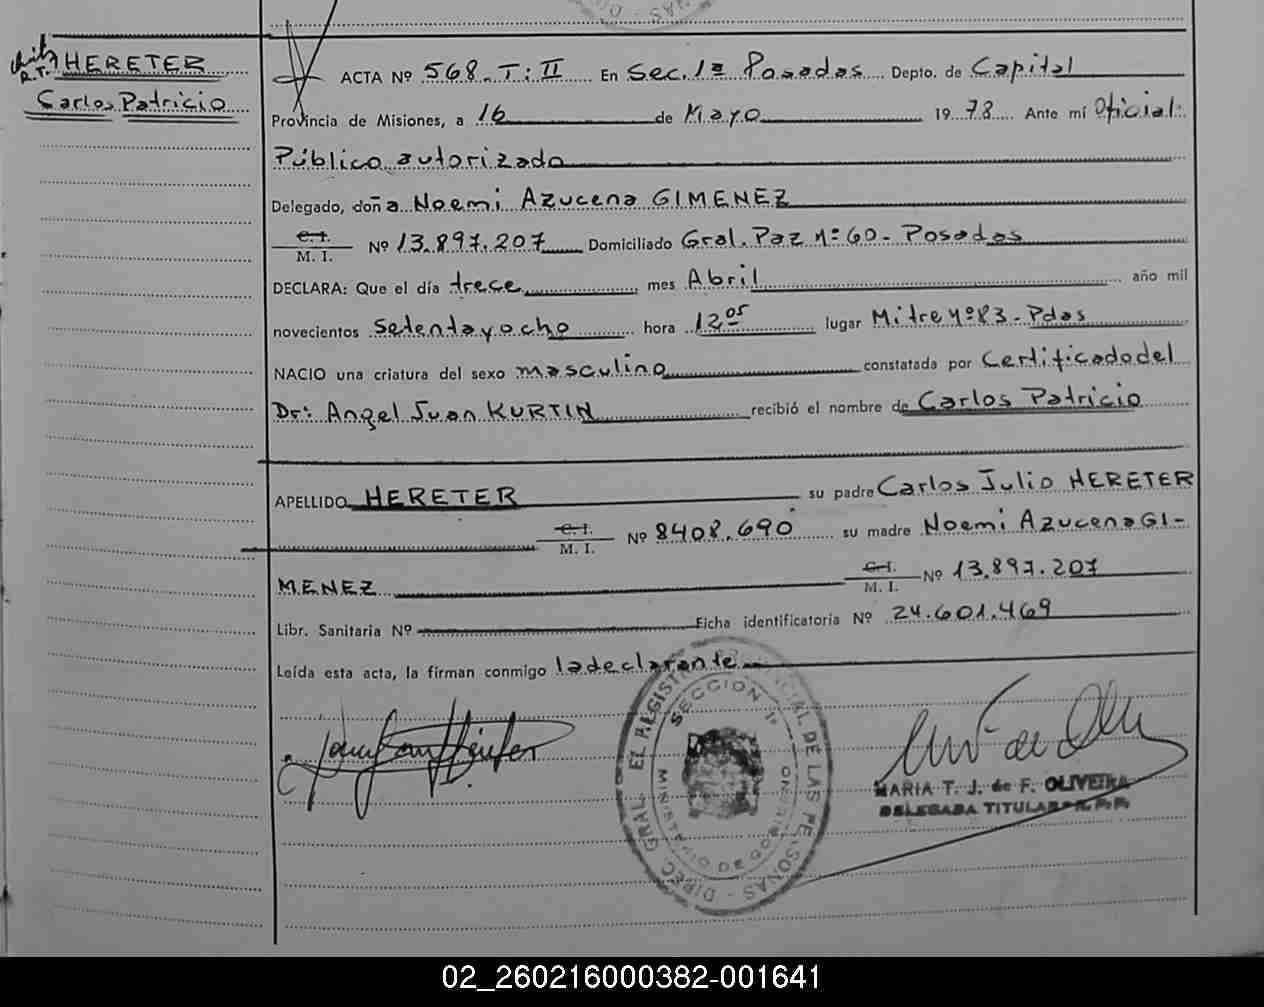 HERETER
R.T.
Carlos Patricio
ACTA Nº 568. T: II En Sec. 1ª Posadas Depto. de Capital
Provincia de Misiones, a 16 de Mayo 1978 Ante mí Oficial
Público autorizado
Delegado, doña Noemi Azucena GIMENEZ
C. I.
M. I.
Nº 13.897.207 Domiciliado Gral. Paz Nº 60 - Posadas
DECLARA: Que el día trece mes Abril año mil
novecientos setenta y ocho hora 12 05 lugar Mitre Nº 83 - Pdas
NACIO una criatura del sexo masculino constatada por Certificado del
Dr: Angel Juan KURTIN recibió el nombre de Carlos Patricio
APELLIDO HERETER su padre Carlos Julio HERETER
C. I.
M. I.
Nº 8408.690 su madre Noemi Azucena GI-
MENEZ
C. I.
M. I.
Nº 13.897.207
Libr. Sanitaria Nº Ficha identificatoria Nº 24.601.469
Leída esta acta, la firman conmigo la declarante
DIREC. GRAL. EL REGISTRO PROVINCIAL DE LAS PERSONAS
SECCION 1ª
MINISTERIO DE GOBIERNO
MARIA T. J. de F. OLIVEIRA
DELEGADA TITULAR R. P. P.
02_260216000382-001641